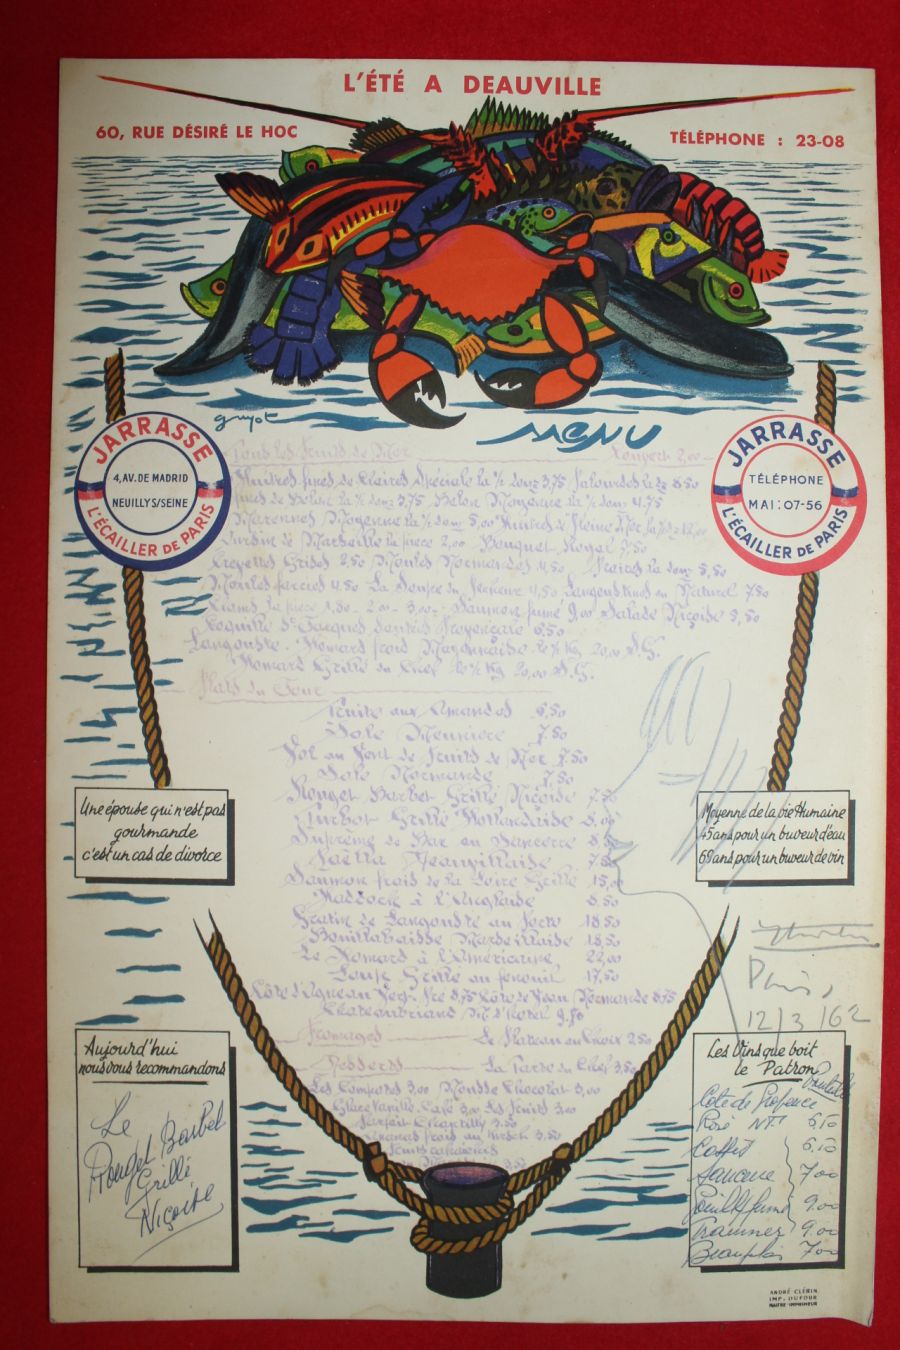 L'ÉTÉ A DEAUVILLE
60, RUE DÉSIRÉ LE HOC
TÉLÉPHONE : 23-08
guyot
MENU
JARRASSE
4, AV. DE MADRID
NEUILLY S/SEINE
L'ÉCAILLER DE PARIS
JARRASSE
TÉLÉPHONE
MAI : 07-56
L'ÉCAILLER DE PARIS
Tous les Fruits de Mer
Couvert 2,00
Huîtres fines de Claires Spéciale la ½ douz 3,75
fines de Belon la ½ douz 3,75 Belon Moyenne la ½ douz 4,75
Marennes Moyenne la ½ douz 5,00 Huîtres de Pleine Mer
Oursins de Marseille la pièce 2,00 Bouquet Royal
Crevettes Grises 2,50 Moules Normandes 4,50 Praires la douz 5,50
Moules farcies 4,50 La Soupe du Pêcheur 4,50 Langoustines au Naturel 7,50
Clams la pièce 1,50 - 2,00 - 3,00 - Saumon fumé 9,00 Salade Niçoise 5,50
Coquille St Jacques Provençale 6,50
Langouste - Homard froid Mayonnaise le ½ Kg 20,00 S.G.
Homard Grillé du Chef le ½ Kg 20,00 S.G.
Plats du Jour
Truite aux Amandes 6,50
Sole Meunière 7,50
Vol au Vent de Fruits de Mer 7,50
Sole Normande 7,50
Rouget Barbet Grillé Niçoise 7,50
Turbot Grillé Hollandaise 8,00
Suprême de Bar au Sancerre
Paëlla Deauvillaise
Saumon frais de la Loire Grillé 15,00
Haddock à l'Anglaise 8,50
Gratin de Langouste au Porto 18,50
Bouillabaisse Marseillaise 18,50
Le Homard à l'Américaine 22,00
Loup Grillé au fenouil 17,50
Côte d'Agneau Vert-Pré 8,75 Côte de Veau Normande 8,75
Chateaubriand Mt d'hôtel 9,50
Fromages
Le Plateau au Choix 2,50
Desserts
La Tarte du Chef 3,50
Les Compotes 3,00 Mousse Chocolat 3,00
Glace Vanille, Café 3,00 Les Fruits 3,00
Parfait Chantilly 3,50
Ananas frais au Kirsch 3,50
Une épouse qui n'est pas
gourmande
c'est un cas de divorce
Moyenne de la vie Humaine
45 ans pour un buveur d'eau
69 ans pour un buveur de vin
Paris,
12/3/62
Aujourd'hui
nous vous recommandons
Le
Rouget Barbet
Grillé
Niçoise
Les Vins que boit
le Patron
Côte de Provence
Rosé
Sancerre 7.00
Pouilly fumé 9.00
Traminer 9.00
Beaujolais 7.00
ANDRÉ CLÉRIN
IMP. DUFOUR
MAITRE-IMPRIMEUR